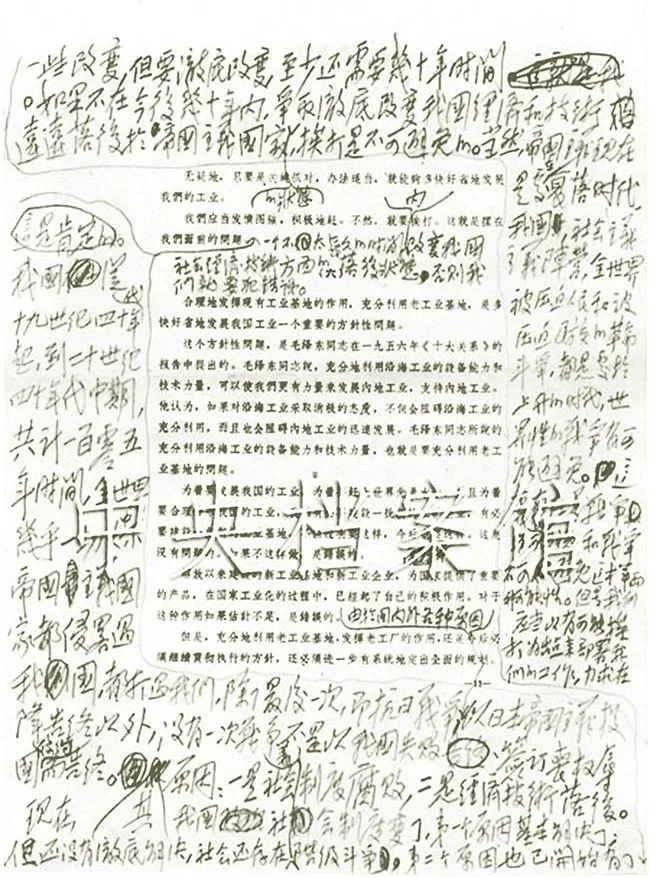 一些改变,但要澈底改变,至少还需要幾十年时间
。如果不在今後幾十年内,争取澈底改变我國经济和技術
遠遠落後於帝國主義國家,挨打是不可避免的。当然,帝國主義现在
是处在衰落时代,
我國,社会主義
阵营,全世界
被压迫人民和被
压迫民族的革命
斗争,都是处於
上升的时代,世
界性的战争有可
能避免。这
应当以有可能挨
打为出发点来部署我
们的工作,力求在
无疑地,只要是关键抓对,办法适当,就能够多快好省地发展
我們的工业。
我們应当发愤图强,积极地赶。不然,就要挨打。这就是摆在
我們面前的問題。
一个不太长久的时间内改变我國
社会经济技術方面的落後状态,否则我
们就要犯错误。
合理地发揮现有工业基地的作用,充分利用老工业基地,是多
快好省地发展我国工业一个重要的方針性問題。
这个方針性問題,是毛泽东同志在一九五六年《十大关系》的
报告中提出的。毛泽东同志說,充分地利用沿海工业的设备能力和
技术力量,可以使我們更有力量来发展内地工业,支持内地工业。
他认为,如果对沿海工业采取消极的态度,不但会阻碍沿海工业的
充分利用,而且也会阻碍内地工业的迅速发展。毛泽东同志所說的
充分利用沿海工业的设备能力和技术力量,也就是要充分利用老工
业基地的問題。
没有問題的。如果不这样做,是錯誤的。
解放以来建设的新工业基地和新工业企业,为国家提供了重要
的产品,在国家工业化的过程中,已經起了自己的积极作用。对于
这种作用如果估計不足,是錯誤的。
由於国内外各种原因
但是,充分地利用老工业基地,发揮老工厂的作用,还是今后必
須继續貫彻执行的方針,还必須进一步有系統地定出全面的规划。
—11—
这是肯定的。
我國从
十九世纪四十年代
起,到二十世纪
四十年代中期,
共计一百零五
年时间,全世界
幾乎一切
帝國主義國
家都侵畧过
我國,都打过我们,除了最後一次,即抗日战争,以日本帝國主義投
降告终以外,没有一次战争不是以我國失败、签订丧权辱
國條约告终。其原因:一是社会制度腐败,二是经济技術落後。
现在,我國社会制度变了,第一个原因基本解决了;
但还没有澈底解决,社会还存在着阶级斗争。第二个原因也已開始有了
中央档案館